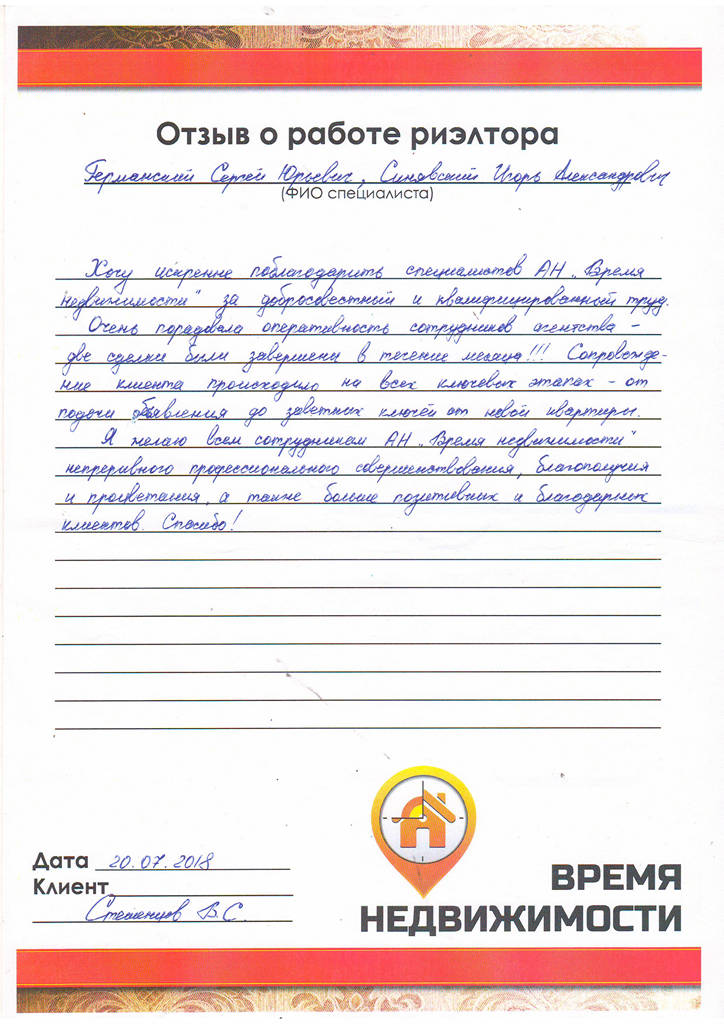 Отзыв о работе риэлтора
Германский Сергей Юрьевич, Синявский Игорь Александрович
(ФИО специалиста)
Хочу искренне поблагодарить специалистов АН „Время
недвижимости" за добросовестный и квалифицированный труд.
Очень порадовала оперативность сотрудников агентства -
две сделки были завершени в течение месяца!!! Сопровожде-
ние клиента происходило на всех ключевых этапах - от
подачи объявления до заветных ключей от новой квартиры.
Я желаю всем сотрудникам АН „Время недвижимости"
непреривного профессионального совершенствования, благополучия
и процветания, а также больше позитивних и благодарных
клиентов. Спасибо!
Дата 20.07.2018
Клиент
В.С.
ВРЕМЯ
НЕДВИЖИМОСТИ